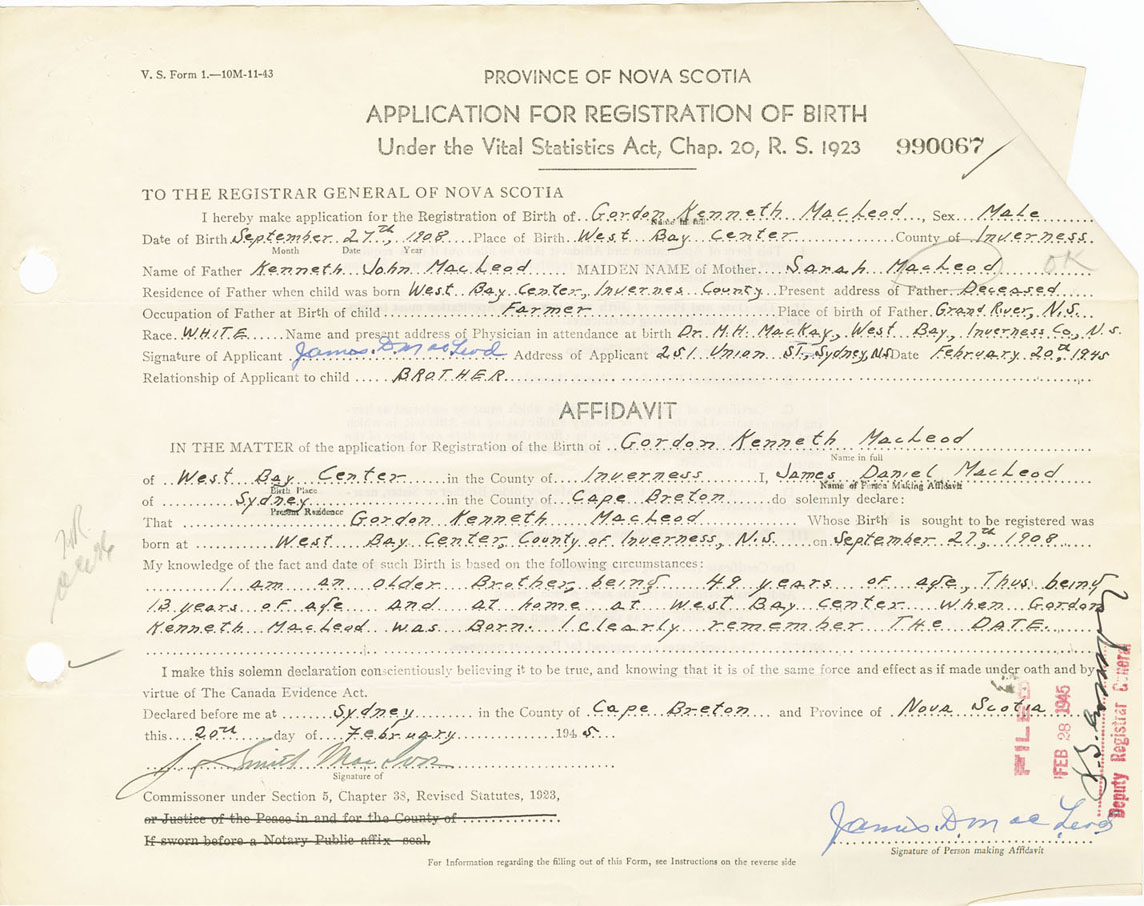 V. S. Form 1.—10M-11-43
PROVINCE OF NOVA SCOTIA
APPLICATION FOR REGISTRATION OF BIRTH
Under the Vital Statistics Act, Chap. 20, R. S. 1923 990067
TO THE REGISTRAR GENERAL OF NOVA SCOTIA
I hereby make application for the Registration of Birth of Gordon Kenneth MacLeod, Sex Male
Name in full
Date of Birth September 27th, 1908 Place of Birth West Bay Center County of Inverness.
Month Date Year
Name of Father Kenneth John MacLeod MAIDEN NAME of Mother Sarah MacLeod OK
Residence of Father when child was born West Bay Center, Invernes County Present address of Father Deceased
Occupation of Father at Birth of child Farmer Place of birth of Father Grand River, N.S.
Race WHITE Name and present address of Physician in attendance at birth Dr. M.H. MacKay, West Bay, Inverness Co., N.S.
Signature of Applicant James D. MacLeod Address of Applicant 251 Union ST., Sydney, NS Date February 20th, 1945
Relationship of Applicant to child BROTHER
AFFIDAVIT
IN THE MATTER of the application for Registration of the Birth of Gordon Kenneth MacLeod
Name in full
of West Bay Center in the County of Inverness I, James Daniel MacLeod
Birth Place Name of Person Making Affidavit
of Sydney in the County of Cape Breton do solemnly declare:
Present Residence
That Gordon Kenneth MacLeod Whose Birth is sought to be registered was
born at West Bay Center, County of Inverness, N.S. on September 27th, 1908
My knowledge of the fact and date of such Birth is based on the following circumstances:
I am an older Brother, being 49 years of age, Thus being
12 years of age and at home at West Bay Center when Gordon
Kenneth MacLeod was Born. I clearly remember THE DATE
I make this solemn declaration conscientiously believing it to be true, and knowing that it is of the same force and effect as if made under oath and by
virtue of The Canada Evidence Act.
Declared before me at Sydney in the County of Cape Breton and Province of Nova Scotia
this 20th day of February 1945.
J. Smith
Signature of
Commissoner under Section 5, Chapter 38, Revised Statutes, 1923,
or Justice of the Peace in and for the County of
If sworn before a Notary Public affix seal.
James D MacLeod
Signature of Person making Affidavit
For Information regarding the filling out of this Form, see Instructions on the reverse side
FILED
FEB 28 1945
Deputy Registrar General